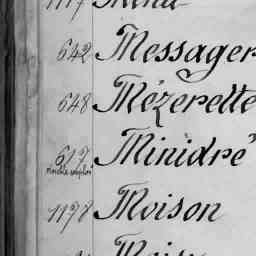 642 Messager
648 Mézerette
617 Minidré
1178 Moison